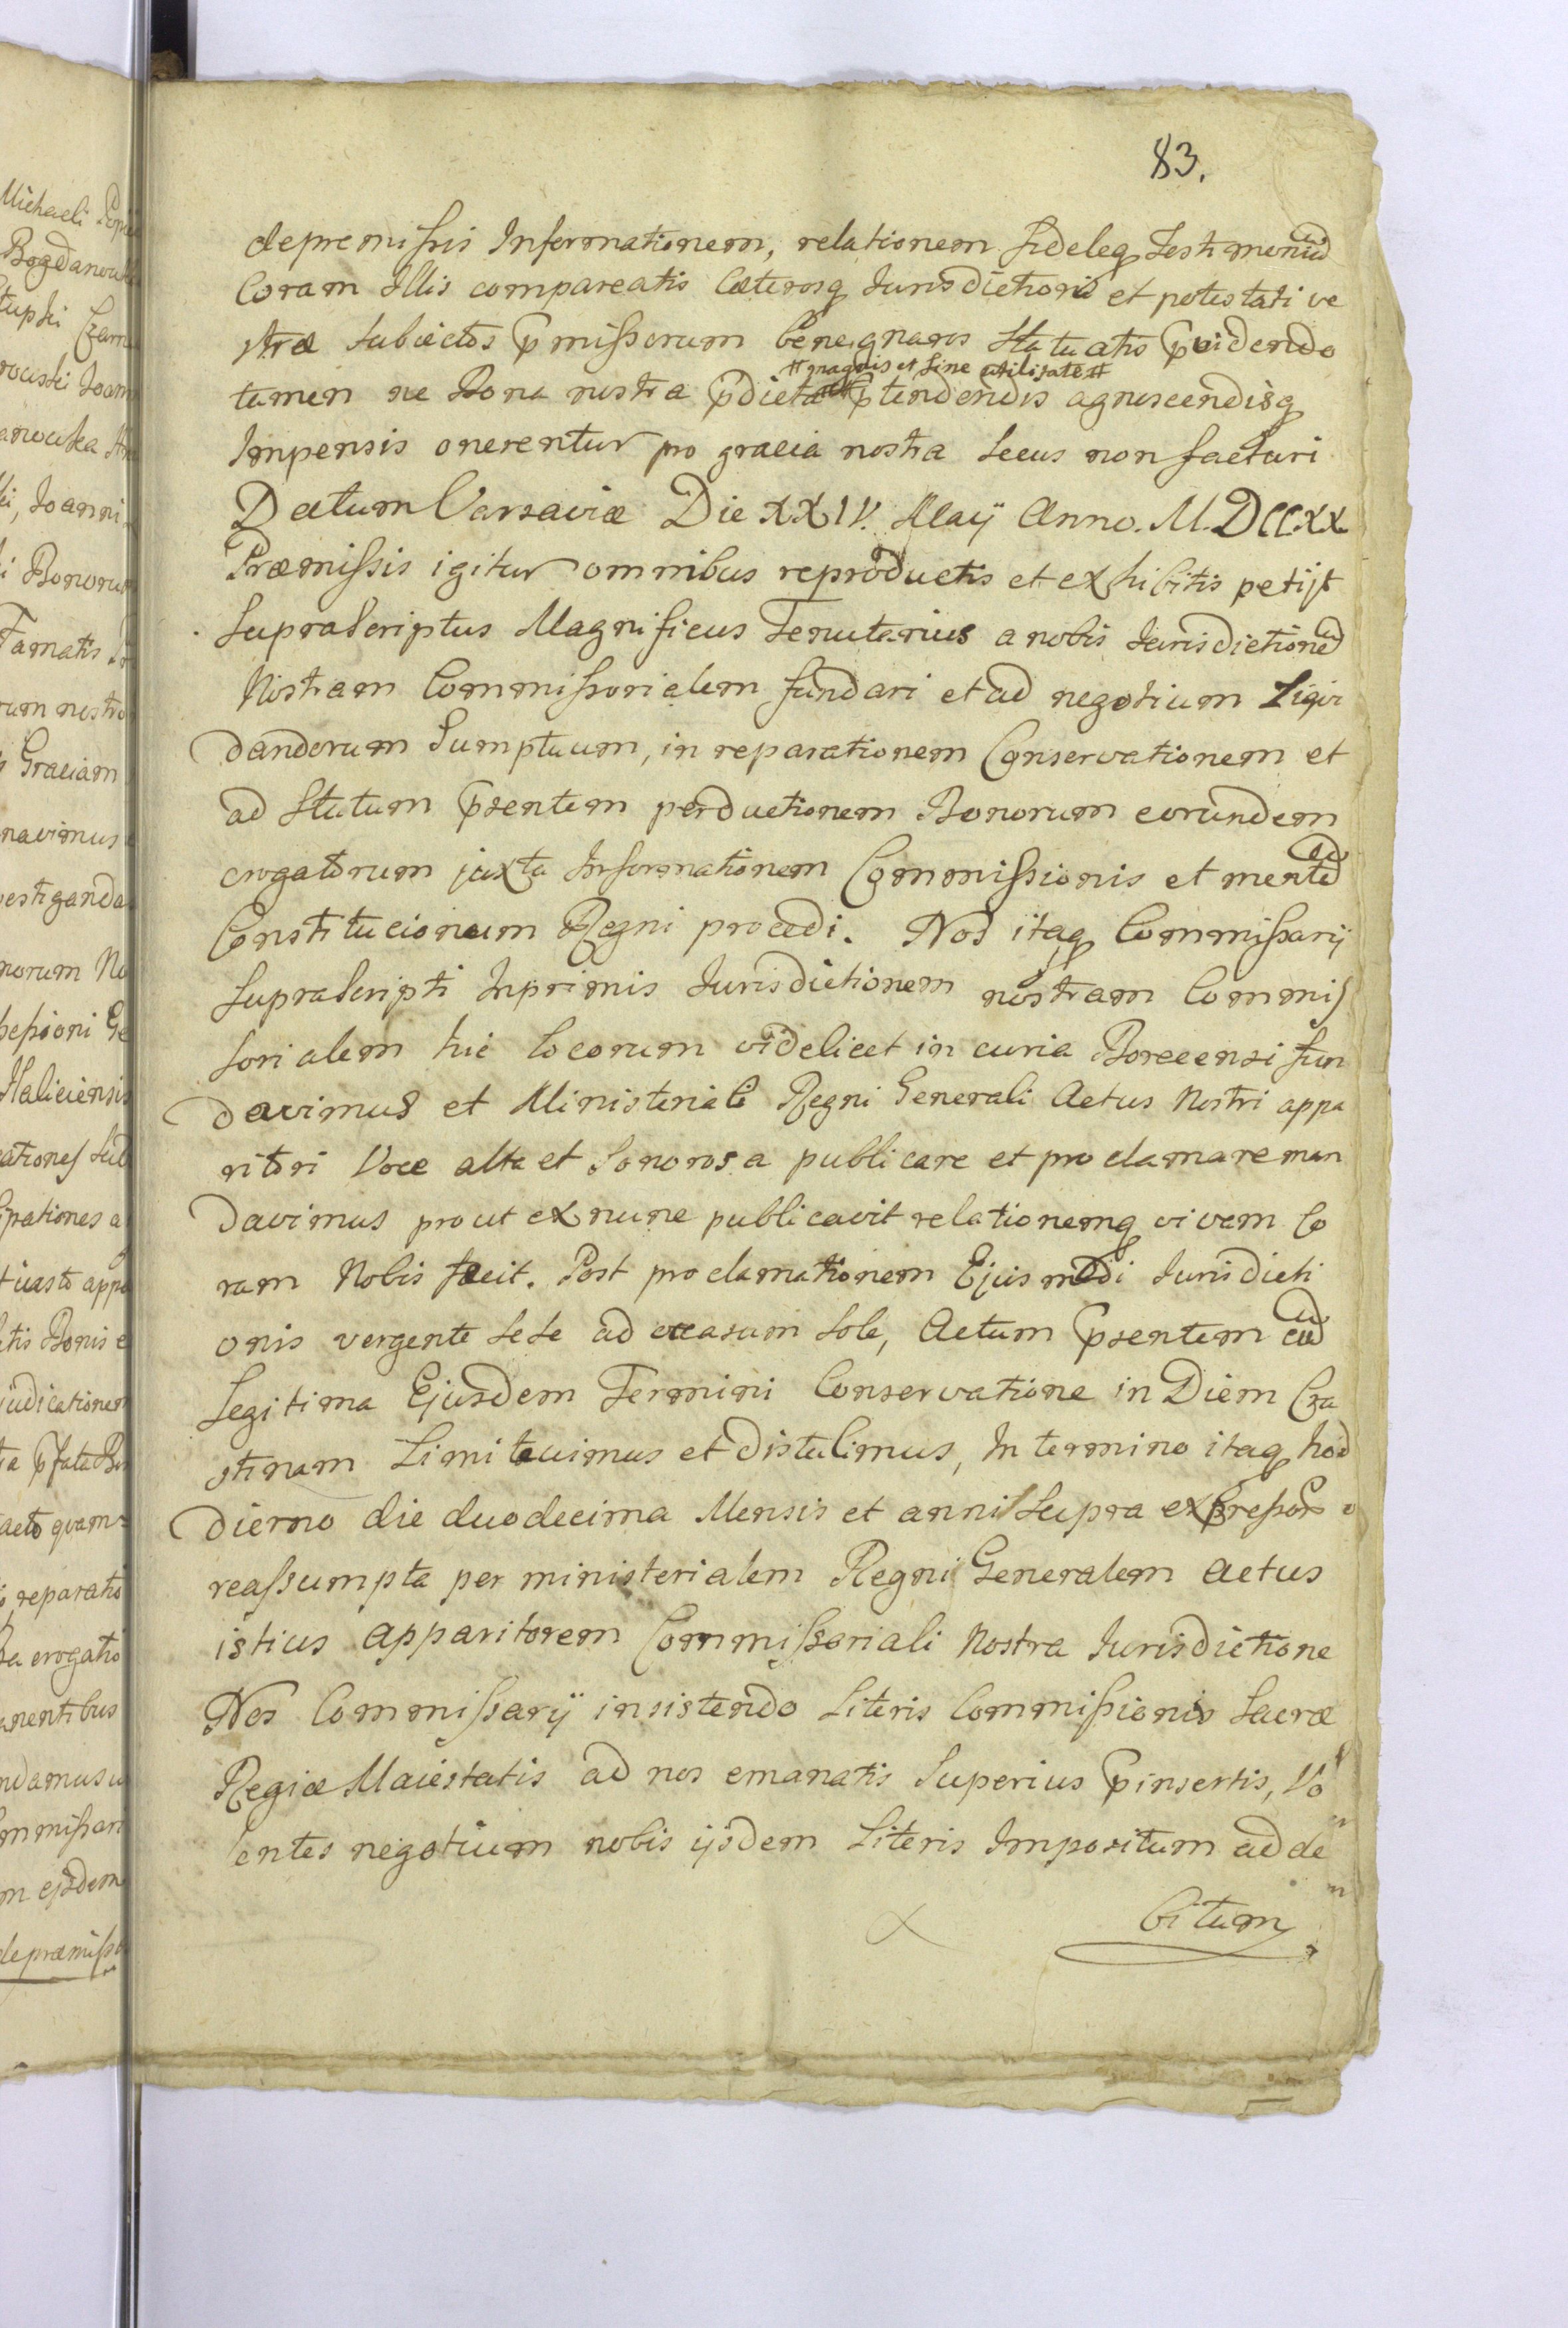 83.
depremissis Informationem, relationem fideleq testimoniu
Coram Illis compareatis Cæterosq Jurisdictioni et potestati ve
stræ subiectos pmissorum bene gnaros statuatis pvidendo
# magnis et sine utilitate #
tamen ne Bona nostra pdicta ptendendis agnoscendisq
Impensis onerentur pro gracia nostra secus non facturi
Datum Varsaviæ Die XXIV. Maij Anno. M.DCC.XX.
Præmissis igitur omnibus reproductis et exhibitis petijt
supraScriptus Magnificus Tenutarius a nobis Jurisdictione
Nostram Commissorialem fundari et ad negotium Liqvi
dandorum Sumptuum, in reparationem Conservationem et
ad statum psentem perductionem Bonorum eorundem
erogatorum juxta Informationem Commissionis et mente
Constitucionum Regni procedi. Nos itaq Commissarij
supraScripti Inprimis Jurisdictionem nostram Commis
sorialem hic locorum videlicet in curia Borecensi fun
davimus et Ministeriali Regni Generali Actus Nostri appa
ritori Voce alta et Sonorosa publicare et proclamare man
davimus prout exnunc publicavit relationemq vivam Co
ram Nobis fecit. Post proclamationem Ejusmodi Jurisdicti
onis vergente sese ad occasum sole, Actum psentem cu
Legitima Ejusdem Termini Conservatione in Diem Cra
stinam Limitavimus et distulimus, In termino itaq ho
dierno die duodecima Mensis et anni supra expressor
reassumpta per ministerialem Regni Generalem actus
istius apparitorem Commissoriali Nostra Jurisdictione
Nos Commissarij insistendo Literis Commissionis Sacræ
Regiæ Maiestatis ad nos emanatis Superius pinsertis, Vo
lentes negotium nobis ijsdem Literis Impositum ad de
bitum
Michaeli
Bogdanow
rowski Joan
anowska
Joanni
Bonorum
Famatis
rum nostro
Graciam
navimus
vestiganda
norum No
Haliciensis
ationes sub
ipationes a
iusto appa
tis Bonis e
judicationem
ta pfata Bo
acto qvam
reparatio
erogatio
nentibus
ndamus
mmissari
m ejsdem
depræmissis